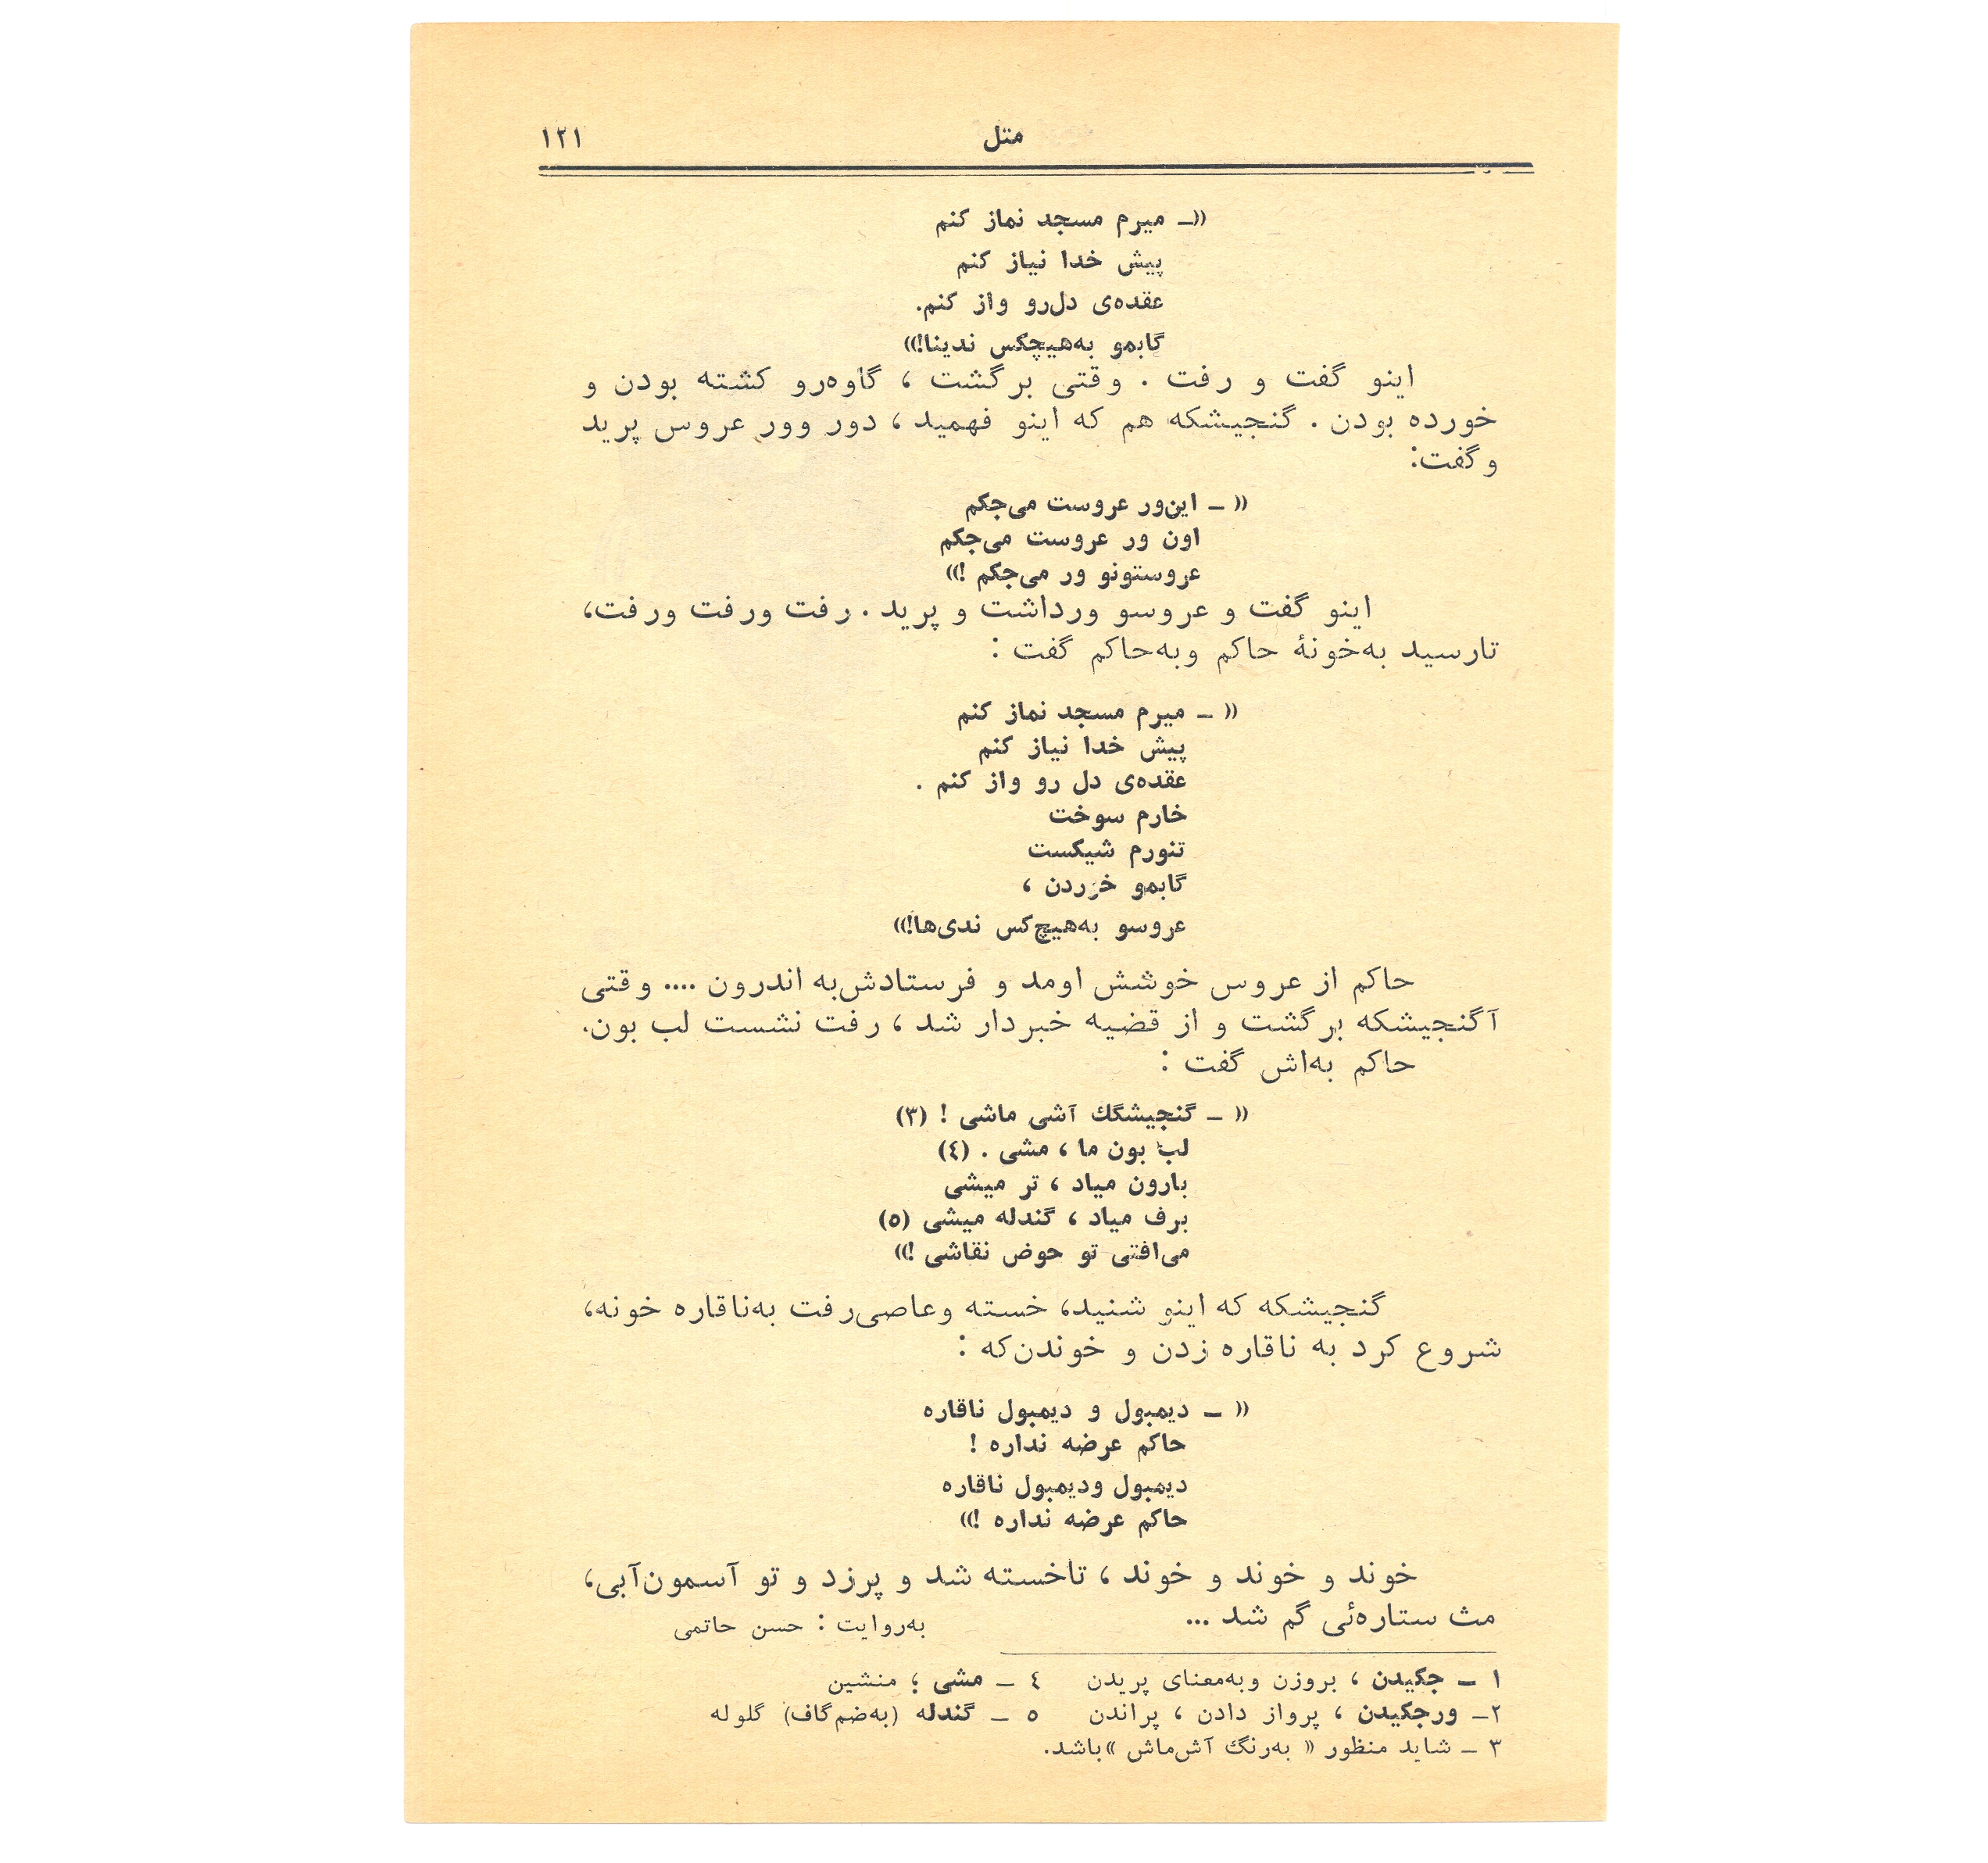 متل ۱۲۱
«ـ میرم مسجد نماز کنم
پیش خدا نیاز کنم
عقده‌ی دل‌رو واز کنم.
گابمو به‌هیچکس ندینا!»
اینو گفت و رفت . وقتی برگشت ، گاوه‌رو کشته بودن و
خورده بودن . گنجیشکه هم که اینو فهمید ، دور وور عروس پرید
و گفت:
« ـ این‌ور عروست می‌جکم
اون ور عروست می‌جکم
عروستونو ور می‌جکم !»
اینو گفت و عروسو ورداشت و پرید . رفت ورفت ورفت،
تارسید به‌خونهٔ حاکم وبه‌حاکم گفت :
« ـ میرم مسجد نماز کنم
پیش خدا نیاز کنم
عقده‌ی دل رو واز کنم .
خارم سوخت
تنورم شیکست
گابمو خوردن ،
عروسو به‌هیچ‌کس ندی‌ها!»
حاکم از عروس خوشش اومد و فرستادش‌به اندرون .... وقتی
آگنجیشکه برگشت و از قضیه خبردار شد ، رفت نشست لب بون.
حاکم به‌اش گفت :
« ـ گنجیشگك آشی ماشی ! (۳)
لب بون ما ، مشی . (٤)
بارون میاد ، تر میشی
برف میاد ، گندله میشی (٥)
می‌افتی تو حوض نقاشی !»
گنجیشکه که اینو شنید، خسته وعاصی‌رفت به‌ناقاره خونه،
شروع کرد به ناقاره زدن و خوندن‌که :
« ـ دیمبول و دیمبول ناقاره
حاکم عرضه نداره !
دیمبول ودیمبول ناقاره
حاکم عرضه نداره !»
خوند و خوند و خوند ، تاخسته شد و پرزد و تو آسمون‌آبی،
مث ستاره‌ئی گم شد ...
به‌روایت : حسن حاتمی
۱ ـ جکیدن ، بروزن وبه‌معنای پریدن ٤ ـ مشی ؛ منشین
۲ـ ورجکیدن ، پرواز دادن ، پراندن ٥ ـ گندله (به‌ضم‌گاف) گلوله
۳ ـ شاید منظور « به‌رنگ آش‌ماش »باشد.